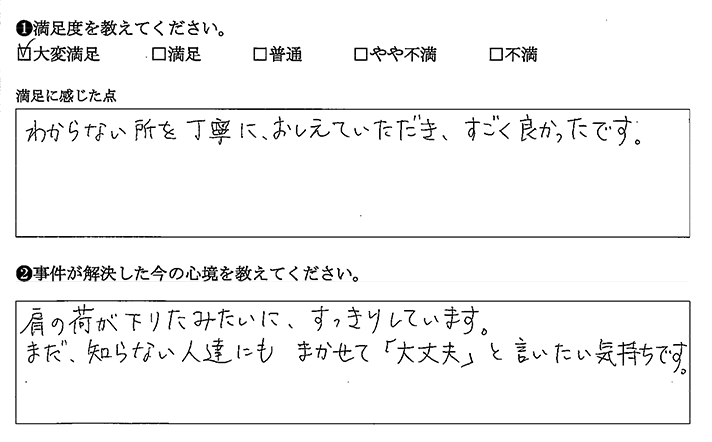 ❶満足度を教えてください。
☑大変満足 □満足 □普通 □やや不満 □不満
満足に感じた点
わからない所を丁寧に、おしえていただき、すごく良かったです。
❷事件が解決した今の心境を教えてください。
肩の荷が下りたみたいに、すっきりしています。
まだ、知らない人達にも まかせて「大丈夫」と言いたい気持ちです。